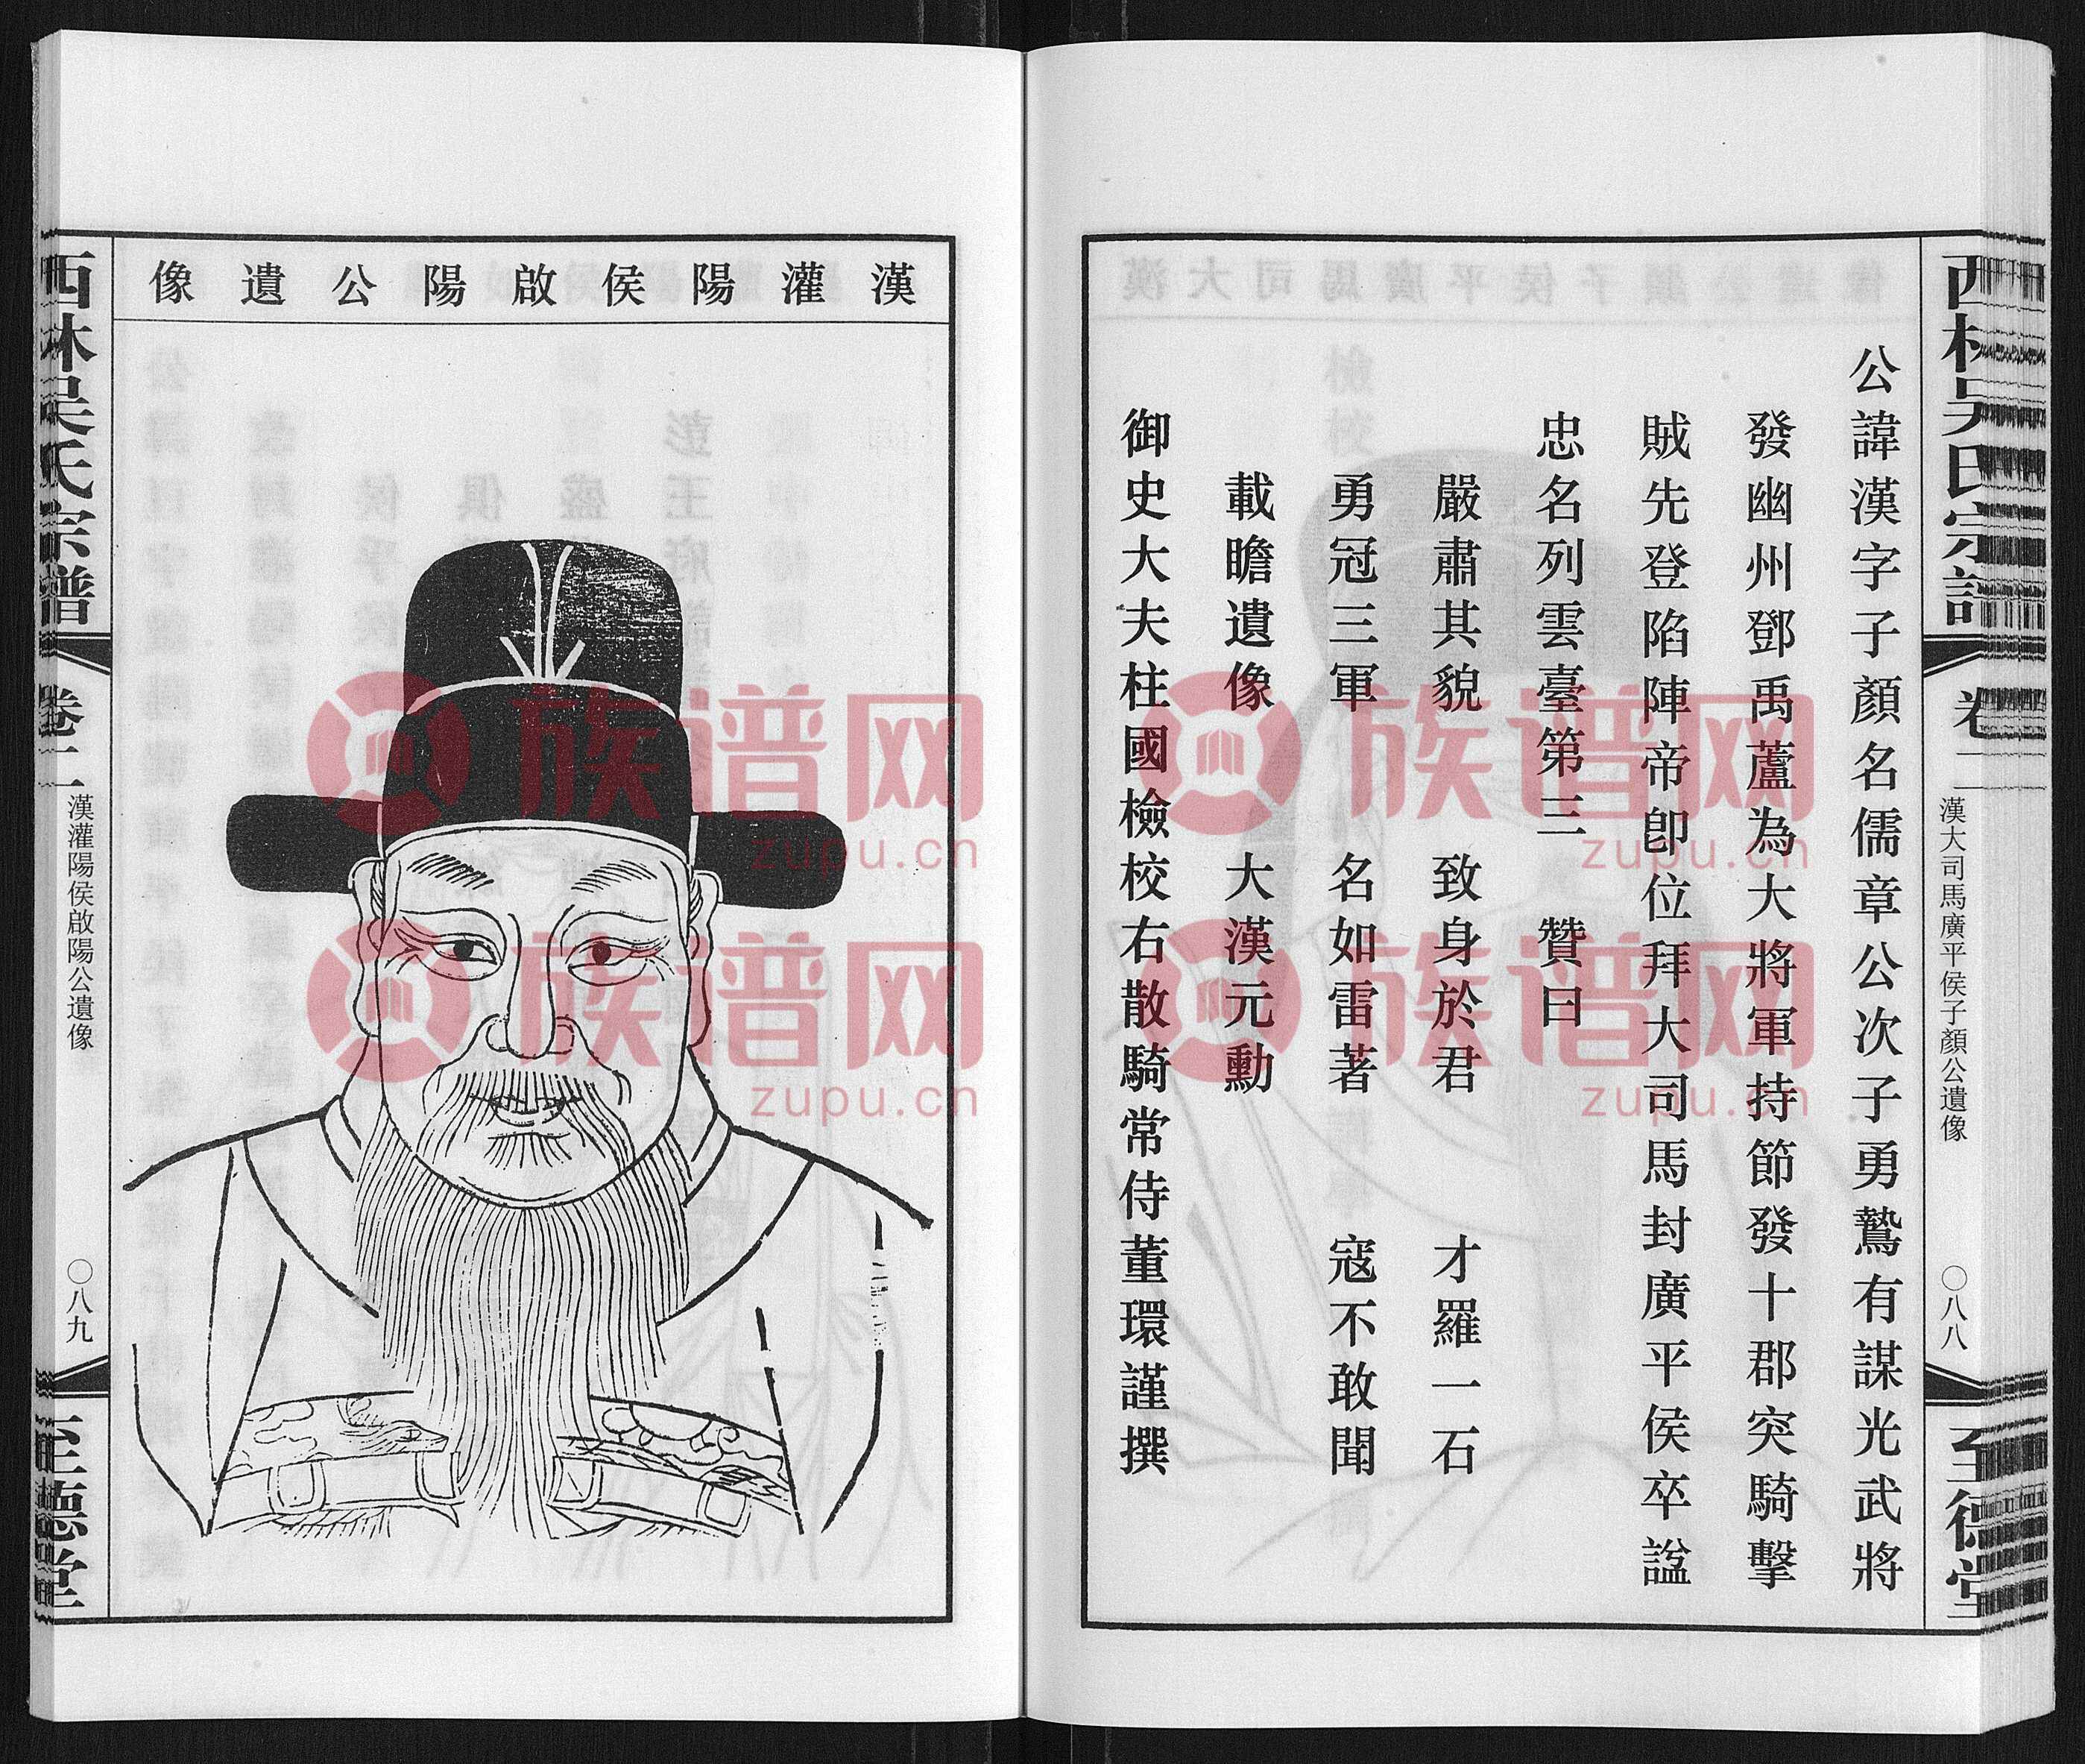 西林吳氏宗譜
卷二
漢大司馬廣平侯子顏公遺像
〇八八
至德堂
公諱漢字子顏名儒章公次子勇鷙有謀光武將
發幽州鄧禹蘆為大將軍持節發十郡突騎擊
賊先登陷陣帝卽位拜大司馬封廣平侯卒諡
忠名列雲臺第三　贊曰
嚴肅其貌　致身於君　才羅一石
勇冠三軍　名如雷著　寇不敢聞
載瞻遺像　大漢元勳
御史大夫柱國檢校右散騎常侍董環謹撰
漢灌陽侯啟陽公遺像
西林吳氏宗譜
卷二
漢灌陽侯啟陽公遺像
〇八九
至德堂
族谱网
zupu.cn
族谱网
zupu.cn
族谱网
zupu.cn
族谱网
zupu.cn